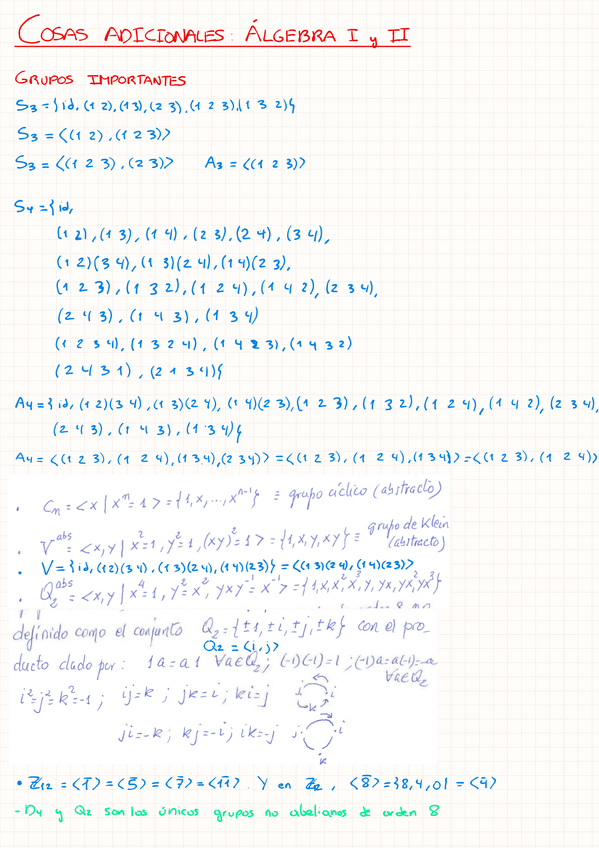 COSAS ADICIONALES: ÁLGEBRA I y II
GRUPOS IMPORTANTES
S3 = {id, (1 2), (1 3), (2 3), (1 2 3), (1 3 2)}
S3 = <(1 2), (1 2 3)>
S3 = <(1 2 3), (2 3)> A3 = <(1 2 3)>
S4 = {id,
(1 2), (1 3), (1 4), (2 3), (2 4), (3 4),
(1 2)(3 4), (1 3)(2 4), (1 4)(2 3),
(1 2 3), (1 3 2), (1 2 4), (1 4 2), (2 3 4),
(2 4 3), (1 4 3), (1 3 4)
(1 2 3 4), (1 3 2 4), (1 4 2 3), (1 4 3 2)
(2 4 3 1), (2 1 3 4)}
A4 = {id, (1 2)(3 4), (1 3)(2 4), (1 4)(2 3), (1 2 3), (1 3 2), (1 2 4), (1 4 2), (2 3 4),
(2 4 3), (1 4 3), (1 3 4)}
A4 = <(1 2 3), (1 2 4), (1 3 4), (2 3 4)> = <(1 2 3), (1 2 4), (1 3 4)> = <(1 2 3), (1 2 4)>
• Cn = <x | xⁿ = 1> = {1, x, ..., xⁿ⁻¹} ≡ grupo cíclico (abstracto)
• V^abs = <x, y | x² = 1, y² = 1, (xy)² = 1> = {1, x, y, xy} ≡ grupo de Klein (abstracto)
• V = {id, (12)(34), (13)(24), (14)(23)} = <(13)(24), (14)(23)>
• Q2^abs = <x, y | x⁴ = 1, y² = x², yxy⁻¹ = x⁻¹> = {1, x, x², x³, y, yx, yx², yx³}
definido como el conjunto Q2 = {±1, ±i, ±j, ±k} con el pro-
Q2 = <i, j>
ducto dado por: 1a = a1 ∀a∈Q2; (-1)(-1) = 1; (-1)a = a(-1) = -a ∀a∈Q2
i² = j² = k² = -1; ij = k; jk = i; ki = j j i k
ji = -k; kj = -i; ik = -j j i k
• Z12 = <1̄> = <5̄> = <7̄> = <1̄1̄>. Y en Z12, <8̄> = {8, 4, 0} = <4̄>
- D4 y Q2 son los únicos grupos no abelianos de orden 8